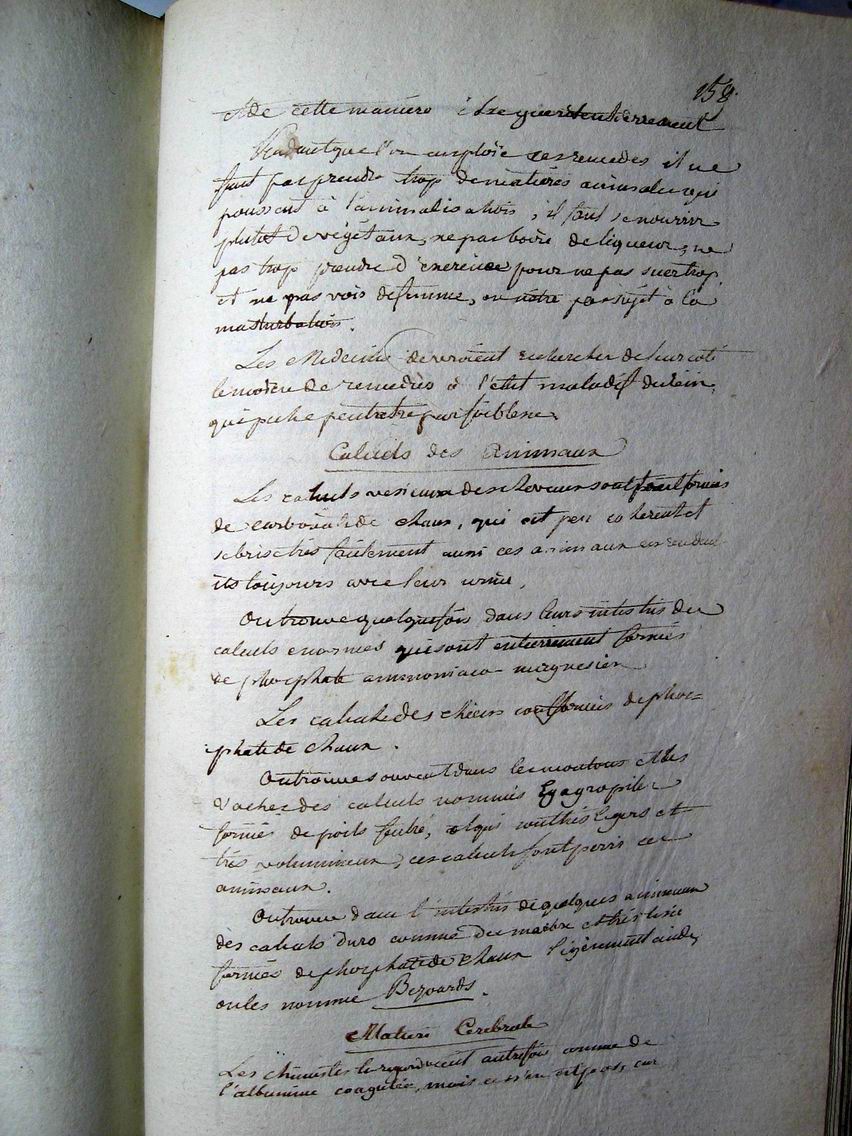 158.
et de cette maniere être guerit entierrement
Pendant que l'on emploie ces remedes il ne
faut pas prendre trop de matières animales qui
poussent à l'animalisation, il faut se nourrir
plutot de végétaux, ne pas boire de liqueur, ne
pas trop prendre d'exercice pour ne pas suer trop,
et ne pas voir de femme, ou être pas sujet à la
masturbation.
Les Medecins devroient rechercher de leur coté
le moien de remedier à l'état maladif du rein,
qui peche peut etre par foiblesse
Calculs des Animaux
Les calculs vesicaux des chevaux sont tout formés
de carbonate de chaux, qui est peu coherent et
se brise très facilement aussi ces animaux en rendent
ils toujours avec leur urine,
On trouve quelquefois dans leurs intestins des
calculs enormes qui sont entierrement formés
de phosphate ammoniaco-magnesien
Les calculs des chiens sont formés de phos=
phate de chaux.
On trouve souvent dans les moutons et les
vaches des calculs nommés Egagropiles
formés de poils feutré, et qui sont très légers et
très volumineux, ces calculs font perir ces
animaux.
On trouve dans l'intestin de quelques animaux
des calculs durs comme du marbre et très lisse
formés de phosphate de chaux légèrement acide,
on les nomme Bezoards.
Matiere Cerebrale
Les chimistes la regardoient autrefois comme de
l'albumine coagulée, mais ce n'en est pas, car